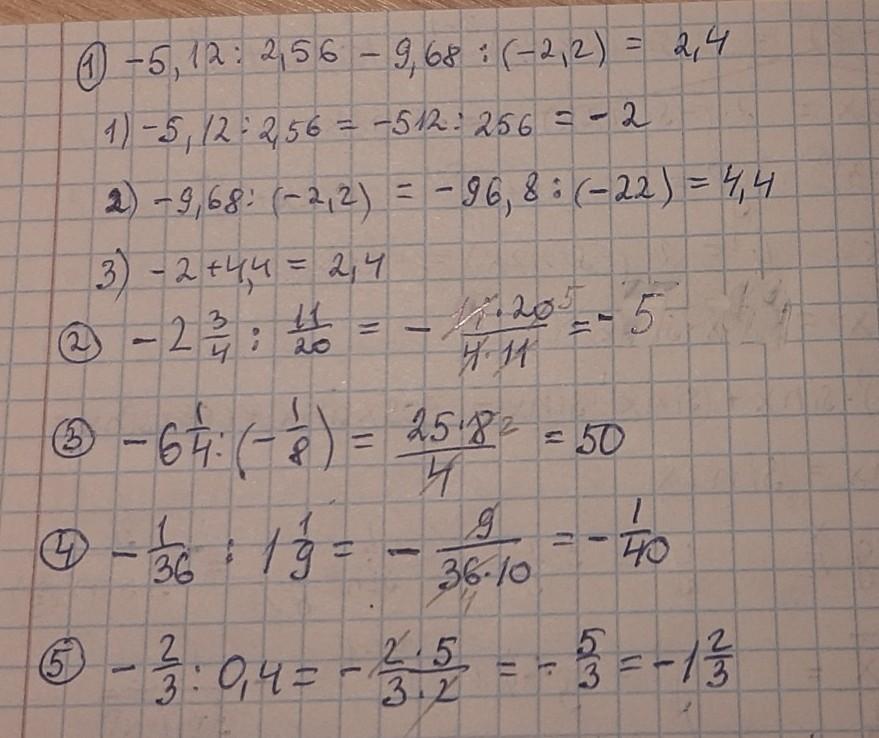 ① -5,12 : 2,56 - 9,68 : (-2,2) = 2,4
1) -5,12 : 2,56 = -512 : 256 = -2
2) -9,68 : (-2,2) = -96,8 : (-22) = 4,4
3) -2 + 4,4 = 2,4
② -2 3/4 : 11/20 = - 11·20 5/4·11 = -5
③ -6 1/4 : (-1/8) = 25·8 2/4 = 50
④ -1/36 : 1 1/9 = - 9/36·10 4 = -1/40
⑤ -2/3 : 0,4 = - 2·5/3·2 = -5/3 = -1 2/3